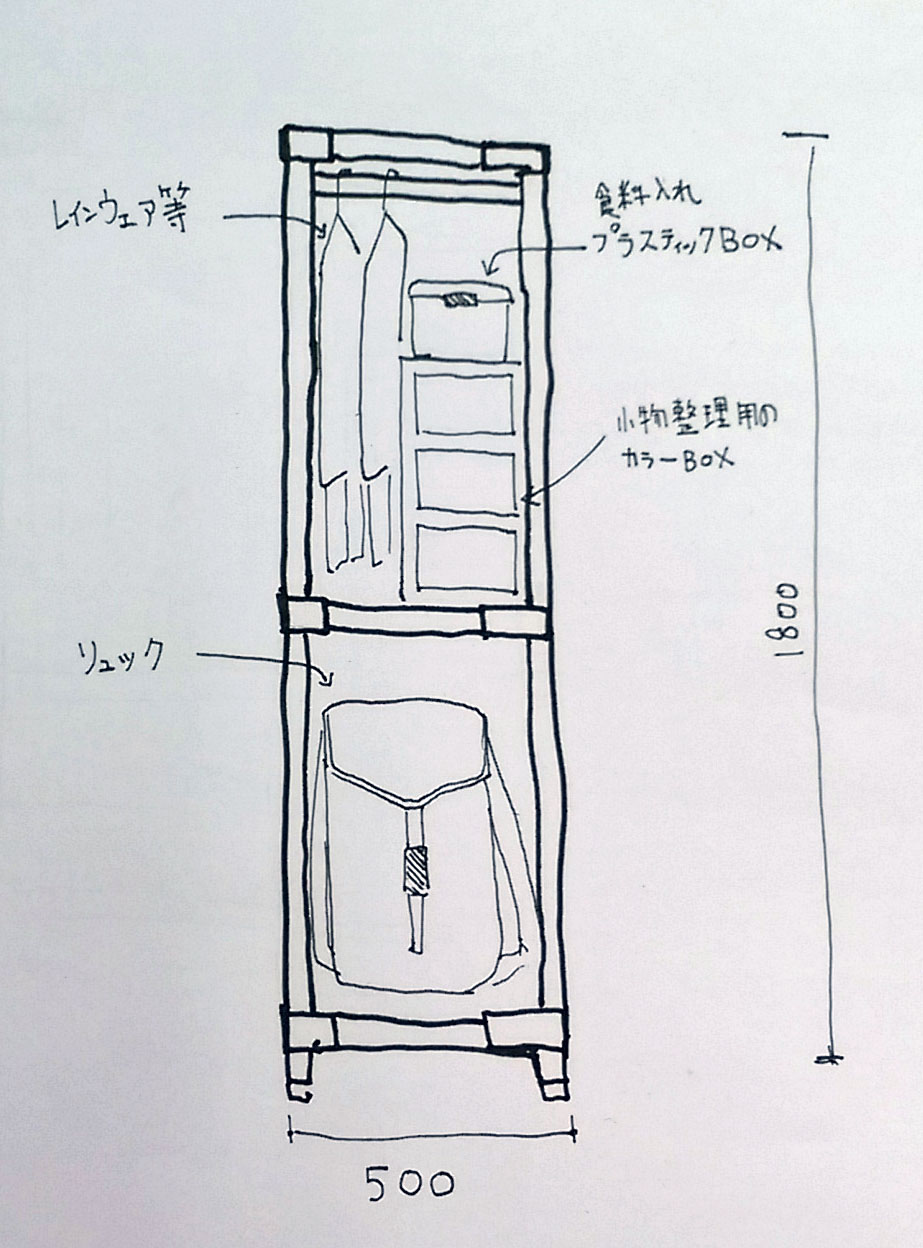 レインウェア等
食料入れ
プラスティックBOX
小物整理用の
カラーBOX
1800
リュック
500